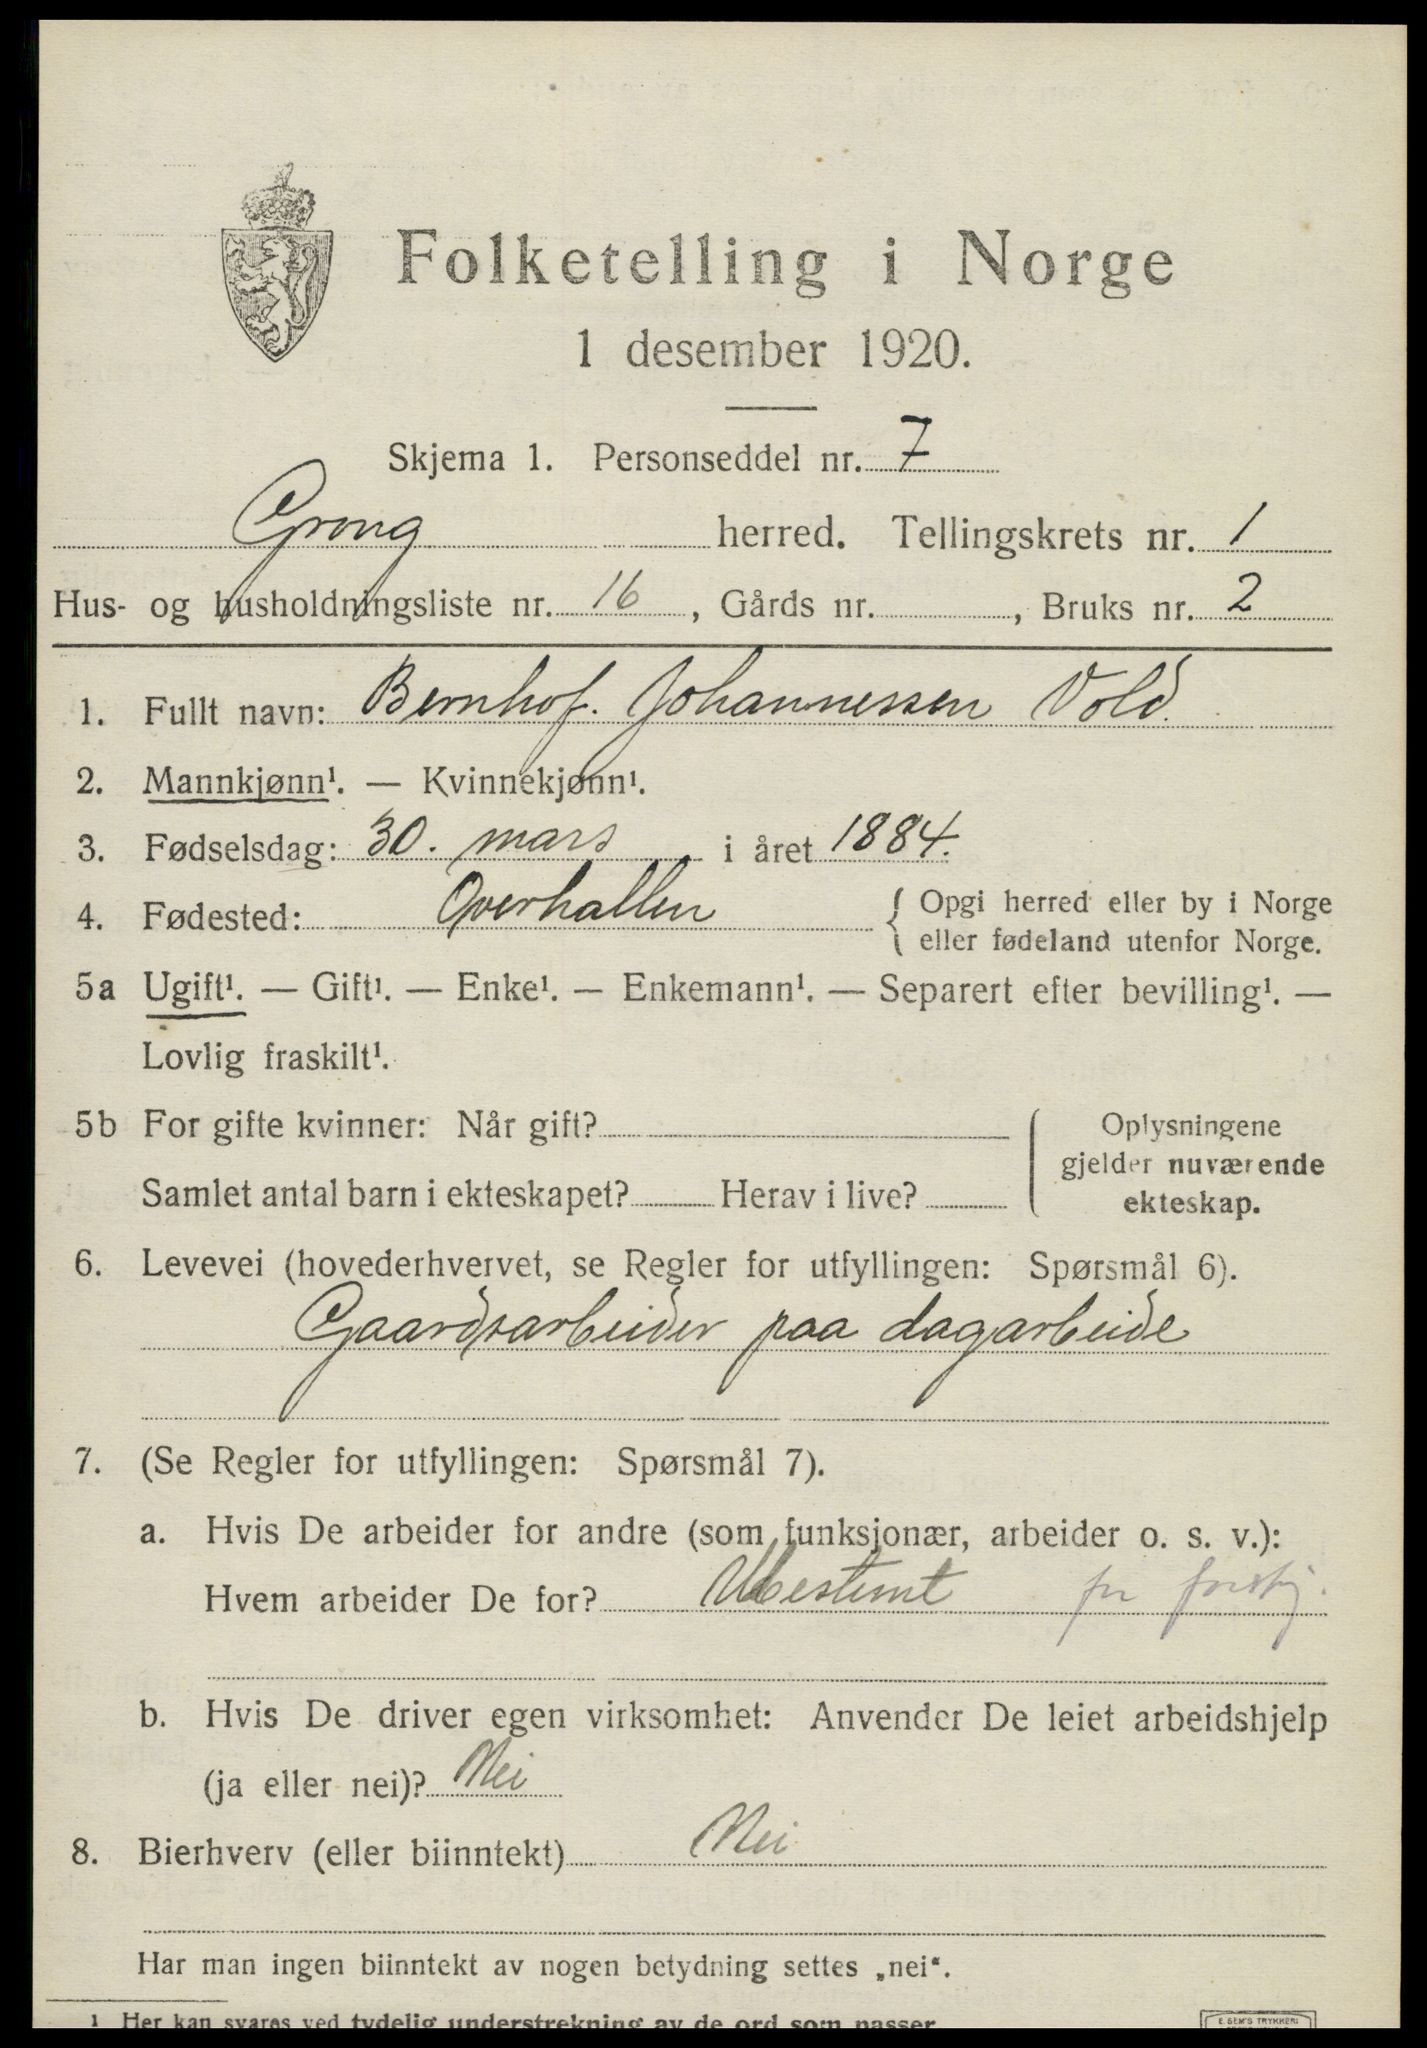 Folketelling i Norge
1 desember 1920.
Skjema 1. Personseddel nr. 7
Grong herred. Tellingskrets nr. 1
Hus- og husholdningsliste nr. 16, Gårds nr. , Bruks nr. 2
1. Fullt navn: Bernhof. Johannessen Vold.
2. Mannkjønn¹. — Kvinnekjønn¹.
3. Fødselsdag: 30. mars i året 1884.
4. Fødested: Overhallen { Opgi herred eller by i Norge
eller fødeland utenfor Norge.
5a Ugift¹. — Gift¹. — Enke¹. — Enkemann¹. — Separert efter bevilling¹. —
Lovlig fraskilt¹.
5b For gifte kvinner: Når gift?
Samlet antal barn i ekteskapet? Herav i live?
Oplysningene
gjelder nuværende
ekteskap.
6. Levevei (hovederhvervet, se Regler for utfyllingen: Spørsmål 6).
Gaardsarbeider paa dagarbeide
7. (Se Regler for utfyllingen: Spørsmål 7).
a. Hvis De arbeider for andre (som funksjonær, arbeider o. s. v.):
Hvem arbeider De for? Ubestemt for forskj.
b. Hvis De driver egen virksomhet: Anvender De leiet arbeidshjelp
(ja eller nei)? Nei
8. Bierhverv (eller biinntekt) Nei
Har man ingen biinntekt av nogen betydning settes „nei“.
¹ Her kan svares ved tydelig understrekning av de ord som passer
E. SEM'S TRYKKERI